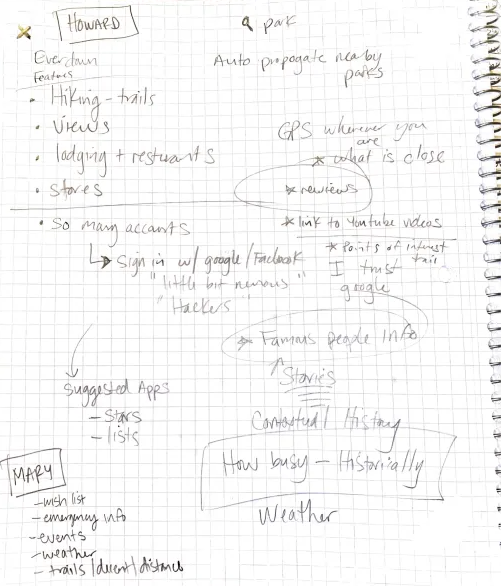 HOWARD
Everdawn
features
• Hiking - trails
• Views
• lodging + resturants
• stores
• So many accounts
Sign in w/ google/Facebook
"little bit nervous"
"Hackers"
Suggested Apps
- Stars
- lists
MARY
- wish list
- emergency info
- events
- weather
- trails/decent/distance
park
Auto propogate nearby
parks
GPS wherever you
are
* what is close
* reviews
* link to Youtube videos
* Points of interest
trail
I trust
google
* Famous people Info
Stories
Contextual History
How busy - Historically
Weather